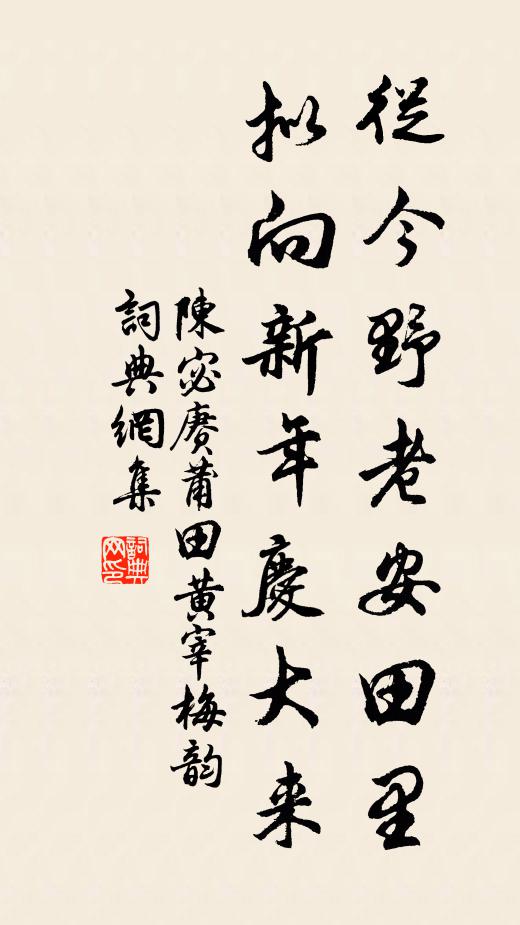 從今野老安田里
拟向新年慶大来
陳宓賡莆田黃宰梅韵
詞典網集
詞典网印